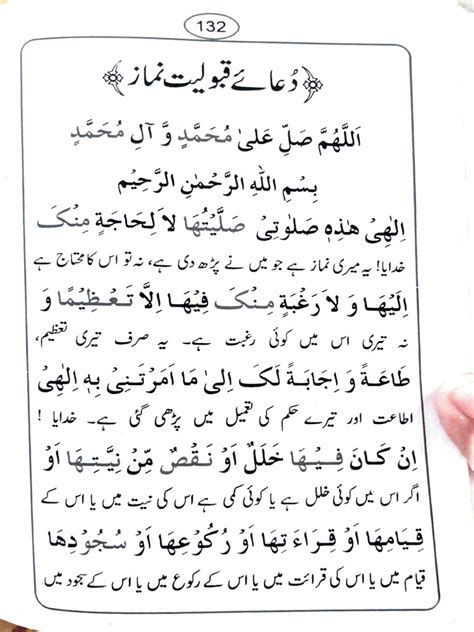 132
دُعائے قبولیت نماز
اَللَّهُمَّ صَلِّ عَلىٰ مُحَمَّدٍ وَّ آلِ مُحَمَّدٍ
بِسْمِ اللهِ الرَّحْمٰنِ الرَّحِيْمِ
اِلٰهِىْ هٰذِهٖ صَلٰوتِىْ صَلَّيْتُهَا لَا لِحَاجَةٍ مِنْكَ
خدایا! یہ میری نماز ہے جو میں نے پڑھ دی ہے، نہ تو اس کا محتاج ہے
اِلَيْهَا وَ لَا رَغْبَةٍ مِنْكَ فِيْهَا اِلَّا تَعْظِيْمًا وَ
نہ تیری اس میں کوئی رغبت ہے۔ یہ صرف تیری تعظیم،
طَاعَةً وَ اِجَابَةً لَكَ اِلىٰ مَا اَمَرْتَنِىْ بِهٖ اِلٰهِىْ
اطاعت اور تیرے حکم کی تعمیل میں پڑھی گئی ہے۔ خدایا !
اِنْ كَانَ فِيْهَا خَلَلٌ اَوْ نَقْصٌ مِّنْ نِيَّتِهَا اَوْ
اگر اس میں کوئی خلل ہے یا کوئی کمی ہے اس کی نیت میں یا اس کے
قِيَامِهَا اَوْ قِرَاءَتِهَا اَوْ رُكُوْعِهَا اَوْ سُجُوْدِهَا
قیام میں یا اس کی قرائت میں یا اس کے رکوع میں یا اس کے سجود میں